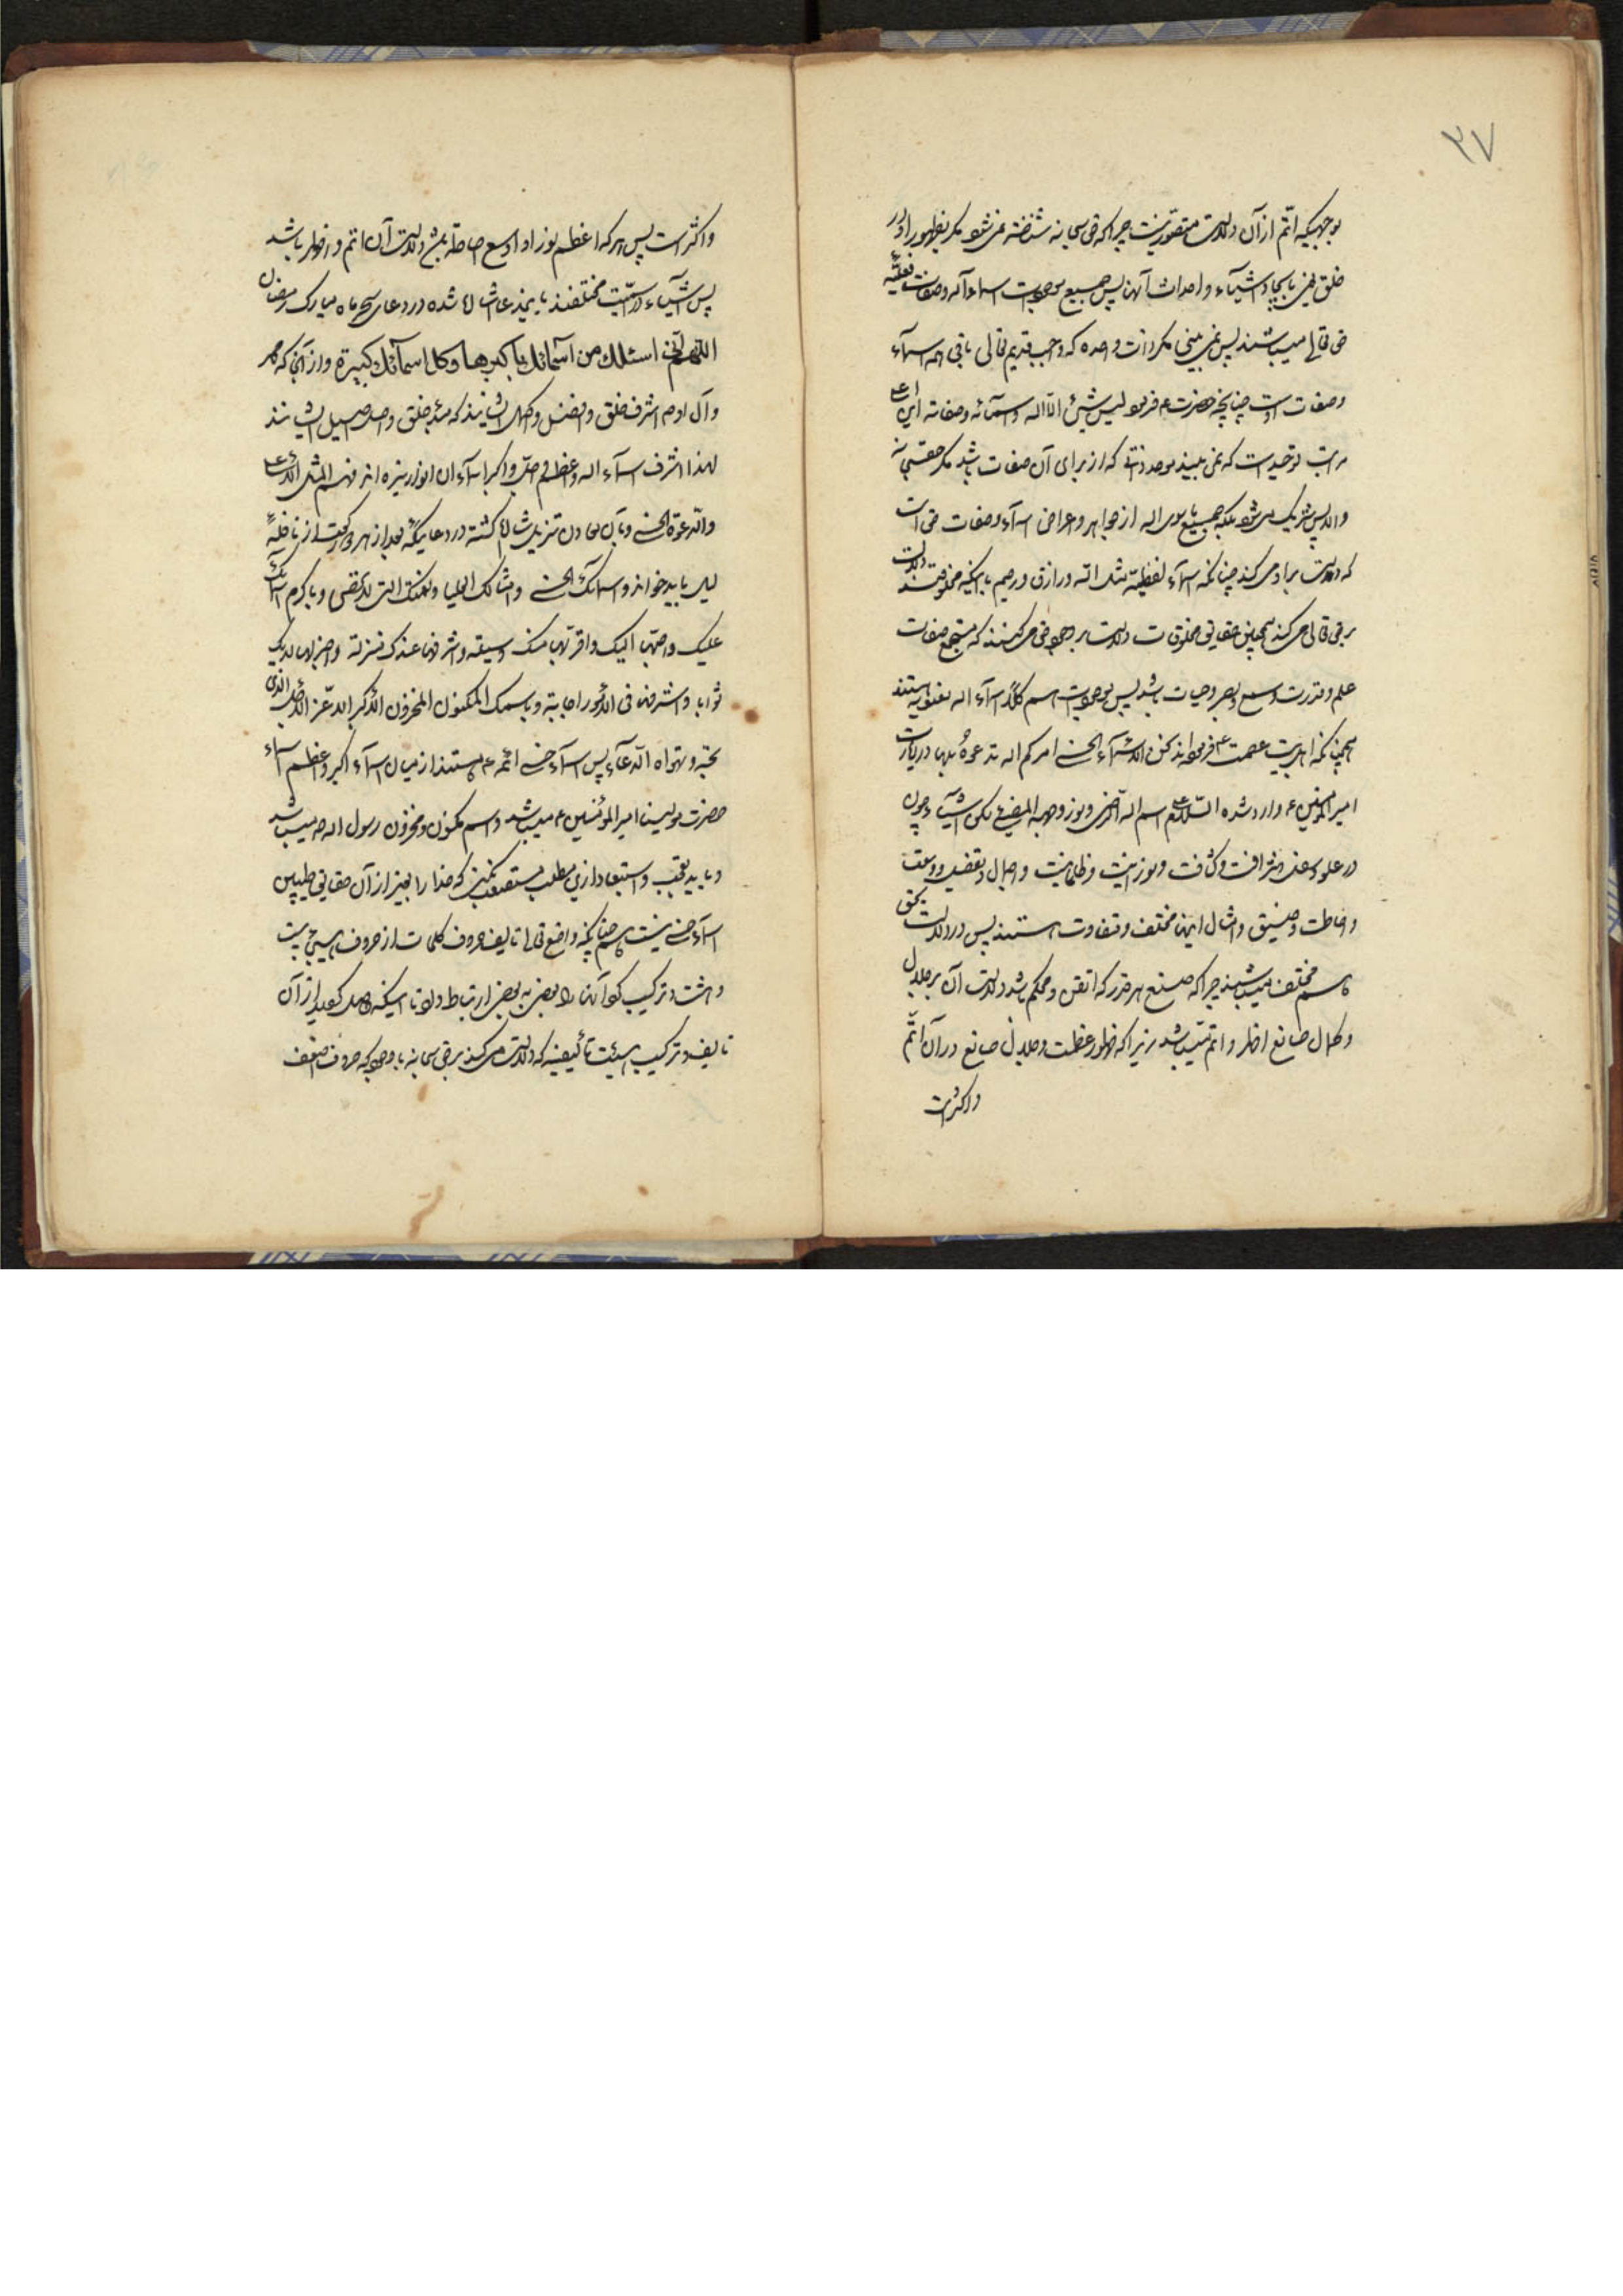 ۳۷
بوجهیکه اتم از آن دلالت متصور نیست چرا که حق سبحانه شناخته نمی‌شود مکر بظهور او در
خلق یعنی بایجاد اشیاء و احداث آنها پس جمیع موجودات اسماء الله و صفات فعلیه
حق تعالی میباشند پس نمی بینی مکر ذات واحده که واجب قدیم تعالی باقی همه اسماء
وصفات اوست چنانچه حضرت ع فرمود لیس شیئ الا الله و اسمائه وصفاته این اعلی
مراتب توحید است که نمی بیند موحد ذاتی که از برای آن صفات باشد مکر حقسبحانه
والا پس شریک می‌شود بلکه جمیع ما سوی الله از جواهر و اعراض اسماء وصفات حق است
که دلالت براو می کند چنانکه اسماء لفظیه مثل الله ورازق ورحیم با اینکه مخلوقند دلالت
برحق تعالی می کند همچنین حقایق مخلوقات دلالت بر وجود حق می کنند که مستجمع صفات
علم وقدرت وسمع وبصر وحیات باشد پس موجودات اسم کلا اسماء الله معنویه هستند
همچنانکه اهلبیت عصمت ع فرموده‌اند نحن والله الاسماء الحسنی امرکم الله تدعوه بها در زیارت
امیرالمؤمنین ع وارد شده السلام علی اسم الله الرضی ونور وجهه المضیئ لکن اشیاء چون
در علو ودنو شرافت وکثافت ونورانیت وظلمانیت واجمال وتفصیل ووسعت
واحاطت وضیق وامثال اینها مختلف ومتفاوت هستند پس در دلالت بحق
هم مختلف میباشند چرا که صنع هر قدر که اتقن ومحکم باشد دلالت آن بر جلال
وکمال صانع اظهر واتم میباشد زیرا که ظهور عظمت وجلال صانع در آن اتم
واکثر است
واکثر است پس هر که اعظم نورا و اوسع احاطة باشد دلالت آن اتم واظهر باشد
پس اشیاء در اسمیت مختلفند باینمدعا اشاره شده در دعای سحر ماه مبارک رمضان
اللهم انی اسئلك من اسمائك باکبرها وکل اسمائك کبیرة واز آنجا که محمد
وآل او ص اشرف خلق وافضل واکمل ایشانند که مبدء خلق واصل اصیل ایشانند
لهذا اشرف اسماء الله واعظم واجل واکبر اسماء ان انوار نیره اند فهم المثل الاعلی
والدعوة الحسنی وبآن معادن تنزیل اشاره کشته در دعائیکه بعد از هر دو رکعت از نافله
لیل باید خواند واسمائک الحسنی وامثالک العلیا ونعمتک التی لا تحصی وباکرم اسمائک
علیک واحبها الیک واقربها منک وسیلة واشرفها عندک منزلة واجزلها لدیک
ثوابا واسرعها فی الامور اجابة وباسمک المکنون المخزون الاکبر الاعز الاجل الذی
تحبه وتهواه الدعاء پس اسماء حسنی ائمه ع هستند از میان اسماء اکبر واعظم اسماء
حضرت مولینا امیرالمؤمنین ع میباشد واسم مکنون ومخزون رسول الله ص میباشد
ونباید تعجب واستبعاد ازین مطلب مستصعب نمود که خدا را بغیر از آن حقایق طیبین
اسماء حسنی نیست هم چنانکه واضع تعالی تالیف حروف کلمات از حروف بیست
وهشت وترکیب کود آنها را بعضی به بعضی ارتباط داد تا اینکه حاصل کردید از آن
تالیف وترکیب هیئت تألیفیه که دلالت می کند برحق سبحانه با وجود که حروف اضعف